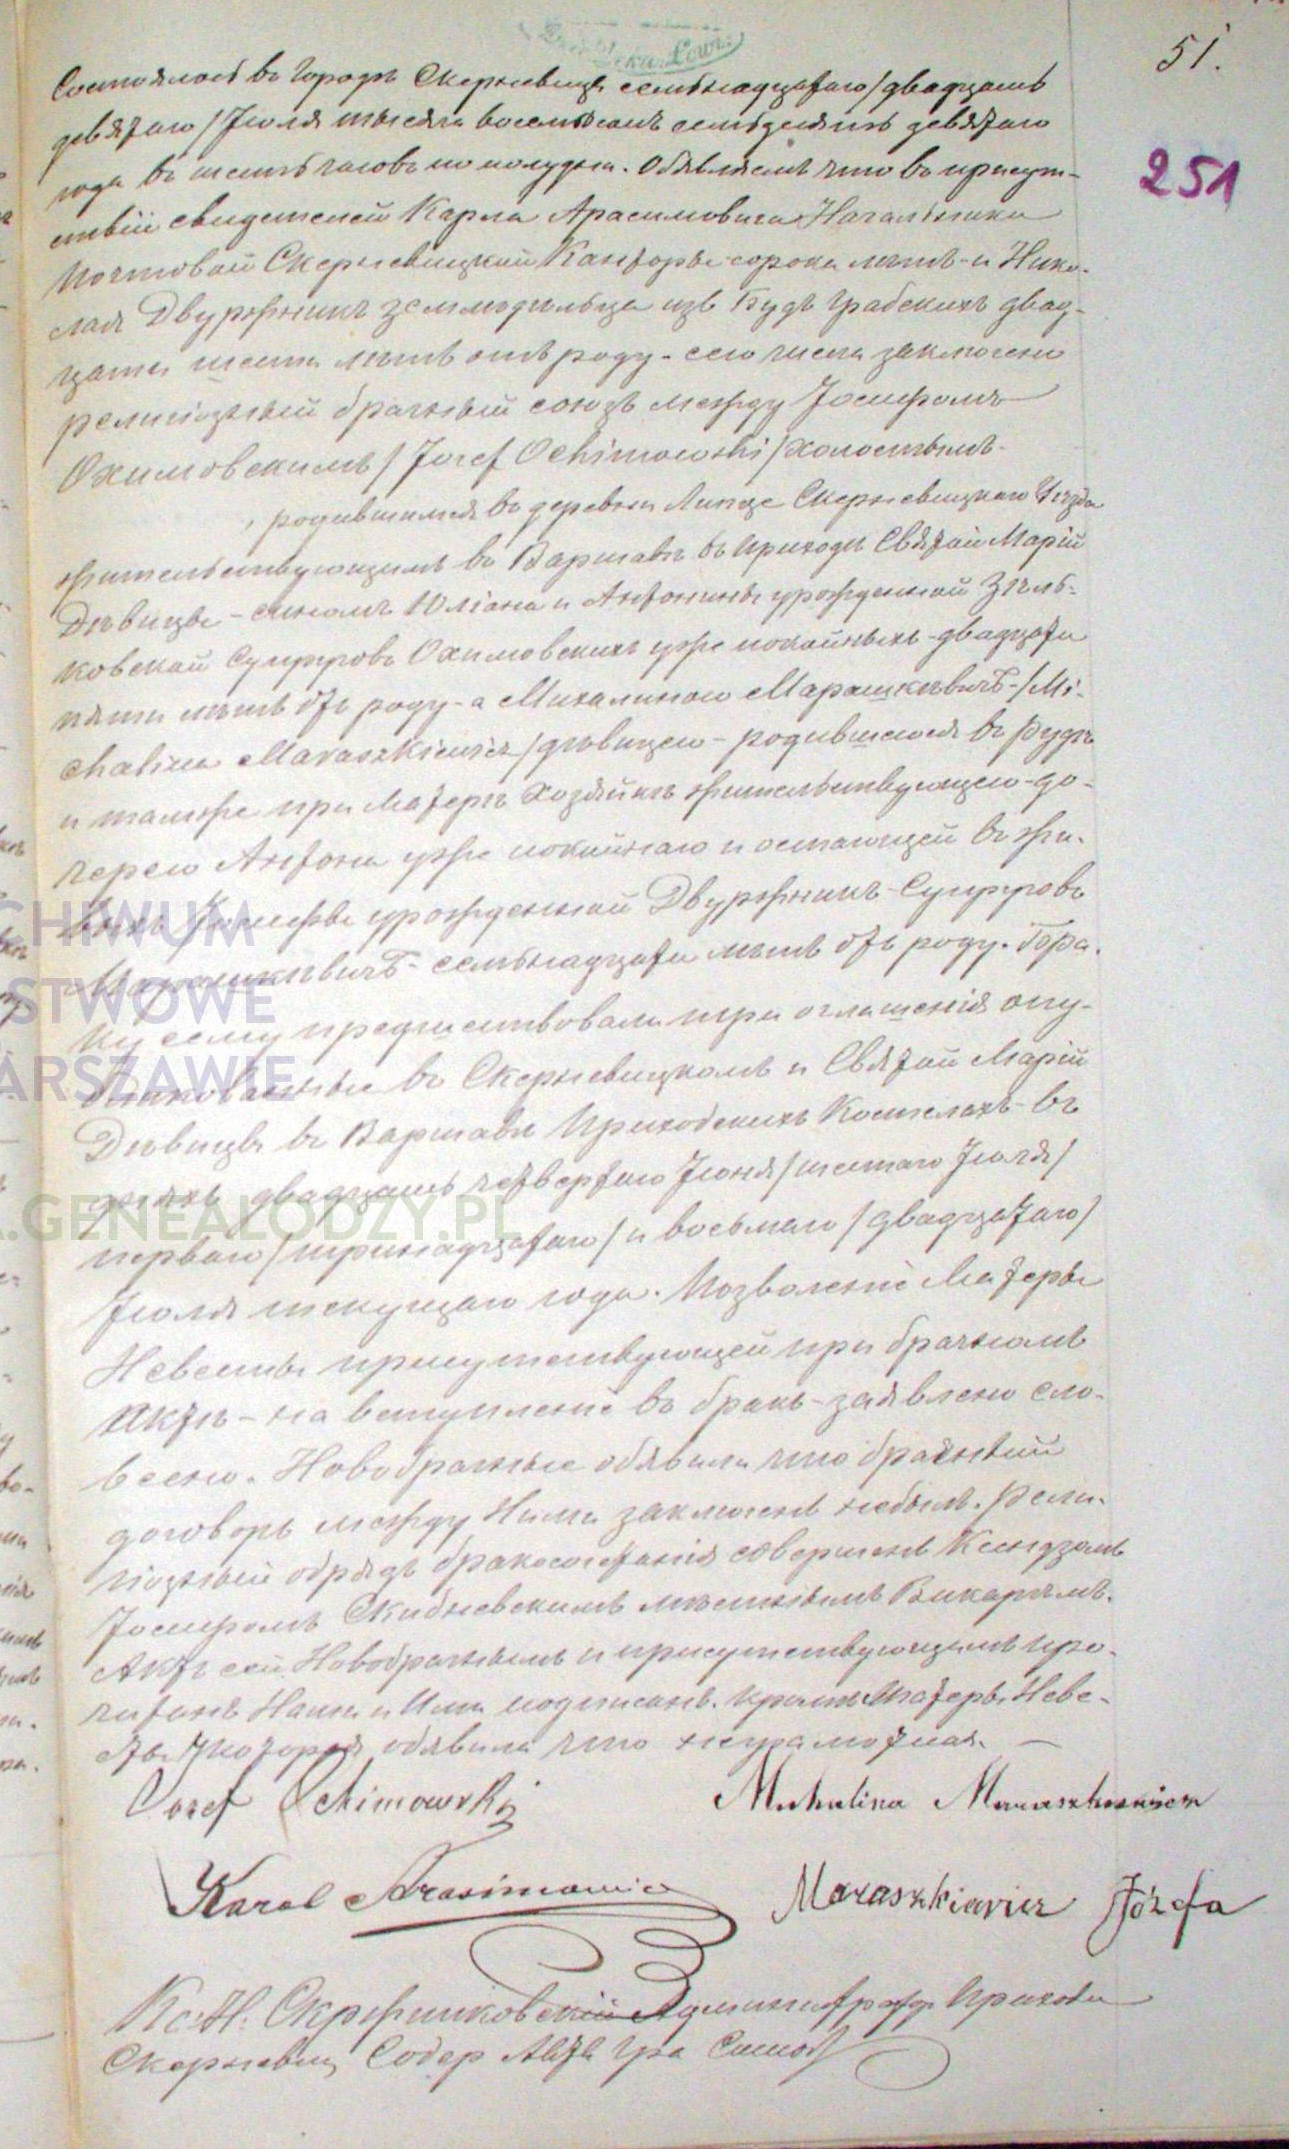 51.
251
Состоялось въ городѣ Скерневице семьнадцатаго /двадцать
девятаго/ Іюля тысяча восемьсотъ семьдесятъ девятаго
года въ шесть часовъ по полудни. Объявляемъ что въ присут-
ствіи свидетелей Карла Арасимовича Начальника
Почтовой Скерневицкой Канторы сорока лѣтъ - и Нико-
лая Двуржникъ земледѣльца изъ Будъ Грабскихъ двад-
цати шести лѣтъ отъ роду - сего числа заключено
религіозный брачный союзъ между Іосифомъ
Охимовскимъ /Josef Ochimowski/ холостымъ
родившимся въ деревни Липце Скерневицкаго Уѣзда
жительствующимъ въ Варшавѣ въ приходѣ Святой Маріи
Дѣвицы - сыномъ Юліана и Антонины урожденной Зѣль-
ковской Супруговъ Охимовскихъ уже покойныхъ - двадцати
пяти лѣтъ отъ роду - а Михалиною Марашкѣвичъ - /Mi-
chalina Maraszkiewicz/ дѣвицею - родившеюся въ Рудѣ
и тамже при Матери Хозяйкѣ жительствующею - до-
черею Антона уже покойнаго и остающей въ жи-
выхъ Юзефы урожденной Двуржникъ - Супруговъ
Марашкѣвичъ - семьнадцати лѣтъ отъ роду. Бра-
ку сему предшествовали три оглашенія опу-
бликованные въ Скерневицкомъ и Святой Маріи
Дѣвицы въ Варшавѣ Приходскихъ Костелахъ - въ
дняхъ двадцать четвертаго Іюня /шестаго Іюля/
перваго /тринадцатаго/ и восьмаго /двадцатаго/
Іюля текущаго года. Позволеніе Матери
Невесты присутствующей при брачномъ
Актѣ - на вступленіе въ бракъ - заявлено сло-
весно. Новобрачные объявили что брачный
договоръ между Ними заключенъ небылъ. Рели-
гіозный обрядъ бракосочетанія совершенъ Ксендзомъ
Іосифомъ Скибневскимъ мѣстнымъ Викаріемъ.
Актъ сей Новобрачнымъ и присутствующимъ про-
читанъ Нами и Ими подписанъ. кромѣ Матери Неве-
сты которая объявила что неграмотная. —
Josef Ochimowski
Michalina Maraszkiewicz
Karol Arasimowicz
Maraszkiewicz Józefa
Кс. Н. Администраторъ Прихода
Скерневиц Содер Акты Гра Сост
ARCHIWUM
PAŃSTWOWE
WARSZAWIE
.GENEALODZY.PL